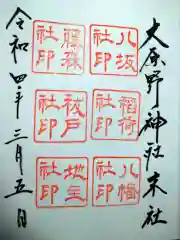 大原野神社末社
八坂社印
藤森社印
稲荷社印
祓戸社印
八幡社印
地主社印
令和四年三月五日